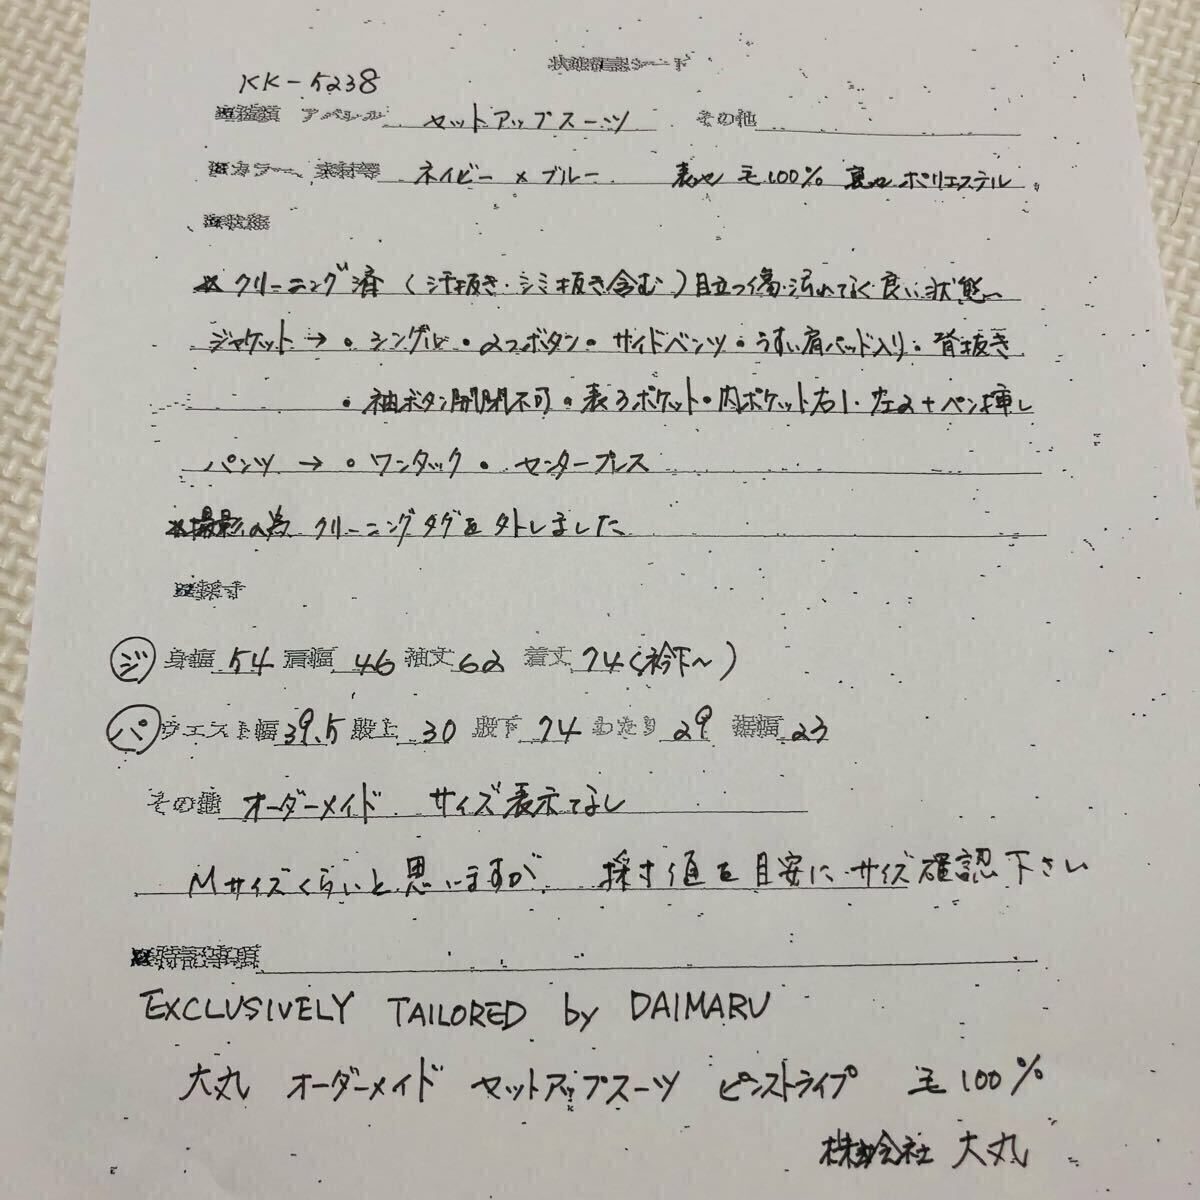 状態確認シート
KK-5238
※種類 アパレル セットアップスーツ その他
※カラー、素材等 ネイビー×ブルー 表地 毛100% 裏地 ポリエステル
※状態
※クリーニング済(汗抜き・シミ抜き含む)目立つ傷・汚れなく良い状態〜
ジャケット→・シングル・2つボタン・サイドベンツ・うすい肩パッド入り・背抜き
・袖ボタン開閉不可・表3ポケット・内ポケット右1・左2+ペン挿し
パンツ→・ワンタック・センタープレス
※撮影の為 クリーニングタグを外しました
※採寸
ジ 身幅 54 肩幅 46 袖丈 62 着丈 74(衿下〜)
パ ウエスト幅 39.5 股上 30 股下 74 わたり 29 裾幅 23
その他 オーダーメイド サイズ表示なし
Mサイズくらいと思いますが、採寸値を目安にサイズ確認下さい
※特記事項
EXCLUSIVELY TAILORED by DAIMARU
大丸 オーダーメイド セットアップスーツ ピンストライプ 毛100%
株式会社 大丸